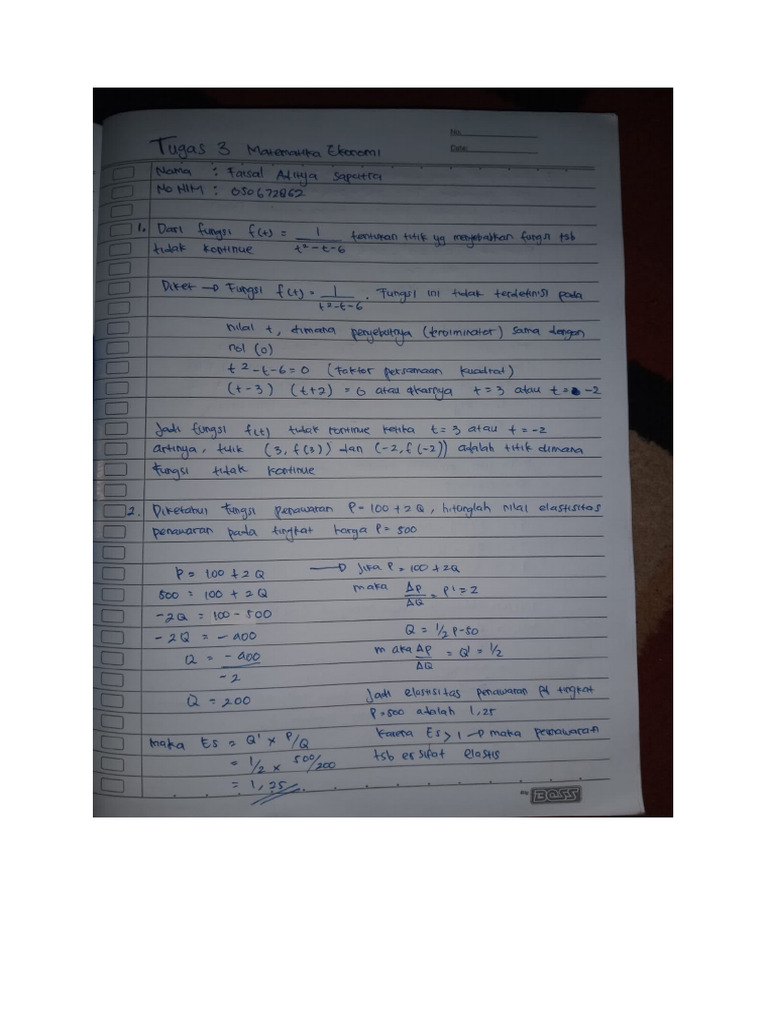 No.
Date:
Tugas 3 Matematika Ekonomi
Nama : Faisal Aditya Saputra
No NIM : 050672862
1. Dari fungsi f(t) = 1 / t²-t-6 tentukan titik yg menyebabkan fungsi tsb
tidak kontinue
Diket → Fungsi f(t) = 1 / t²-t-6 . Fungsi ini tidak terdefinisi pada
nilai t, dimana penyebutnya (terominator) sama dengan
nol (0)
t²-t-6=0 (Faktor persamaan kuadrat)
(t-3) (t+2) = 0 atau akarnya t=3 atau t= -2
Jadi fungsi f(t) tidak kontinue ketika t=3 atau t=-2
artinya, titik (3, f(3)) dan (-2, f(-2)) adalah titik dimana
fungsi tidak kontinue
2. Diketahui fungsi penawaran P=100+2Q, hitunglah nilai elastisitas
penawaran pada tingkat harga P=500
P = 100 + 2Q → Jika P = 100 + 2Q
500 = 100 + 2Q maka ΔP/ΔQ = P' = 2
-2Q = 100 - 500
-2Q = -400 Q = 1/2 P-50
Q = -400 / -2 maka ΔP/ΔQ = Q' = 1/2
Q = 200 Jadi elastisitas penawaran pd tingkat
P=500 adalah 1,25
maka Es = Q' x P/Q Karena Es > 1 → maka penawaran
= 1/2 x 500/200 tsb ersifat elastis
= 1,25
BOSS